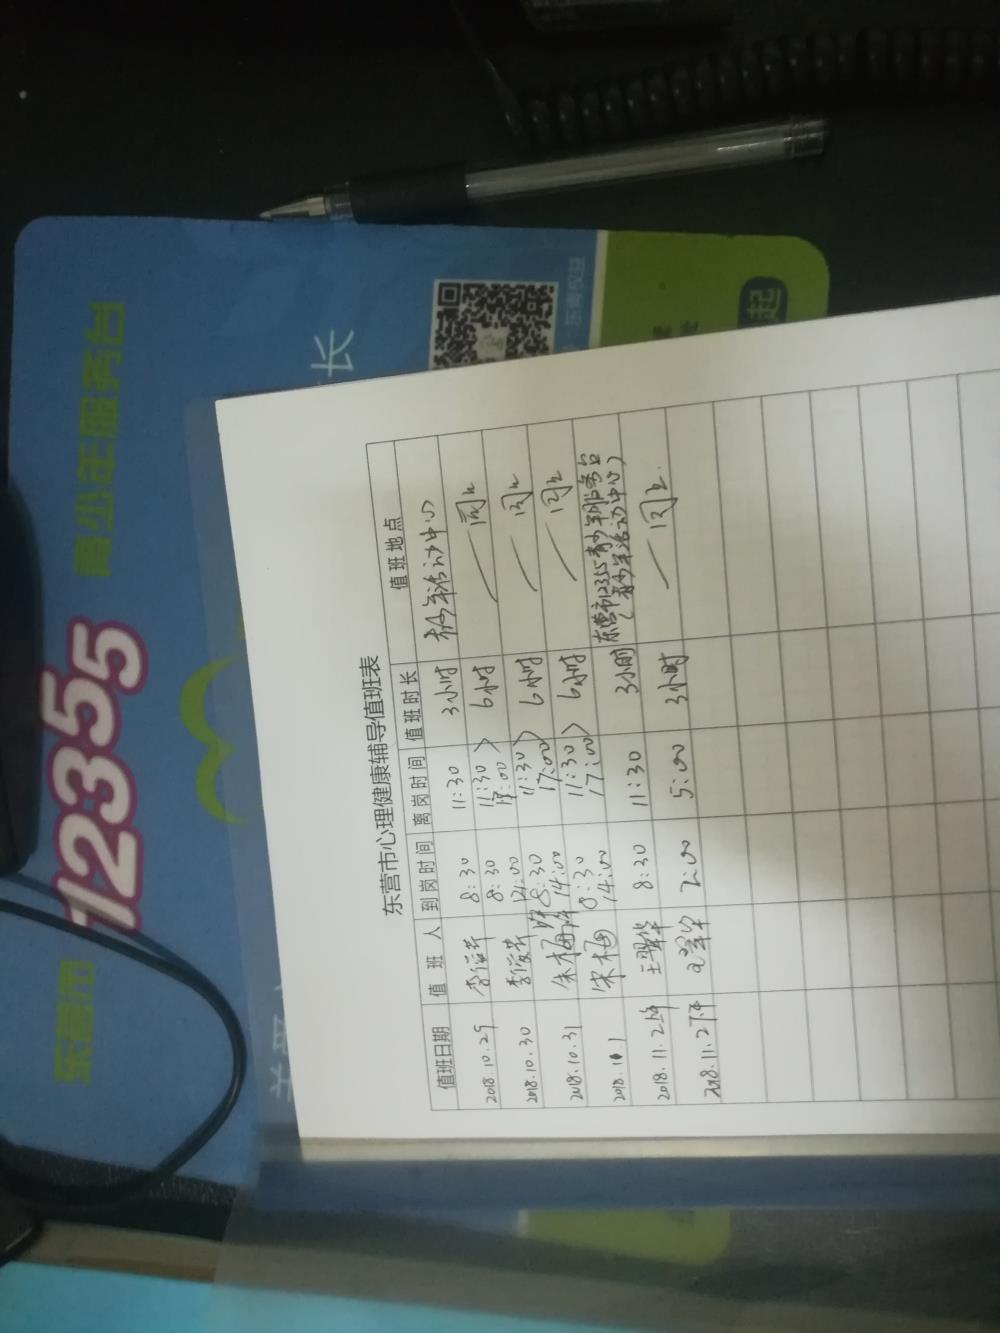 东营市
12355
青少年服务台
长
东青权益
起
东营市心理健康辅导值班表
值班日期 值班人 到岗时间 离岗时间 值班时长 值班地点
2018.10.29 李俊芳 8:30 11:30 3小时 青少年活动中心
2018.10.30 李俊芳 8:30 11:30 6小时 同上
14:00 17:00
2018.10.31 宋梅 8:30 11:30 6小时 同上
14:00 17:00
2018.11.1 宋梅 8:30 11:30 6小时 同上
14:00 17:00
2018.11.2上午 王翠华 8:30 11:30 3小时 东营市12355青少年服务台
(青少年活动中心)
2018.11.2下午 王翠华 2:00 5:00 3小时 同上